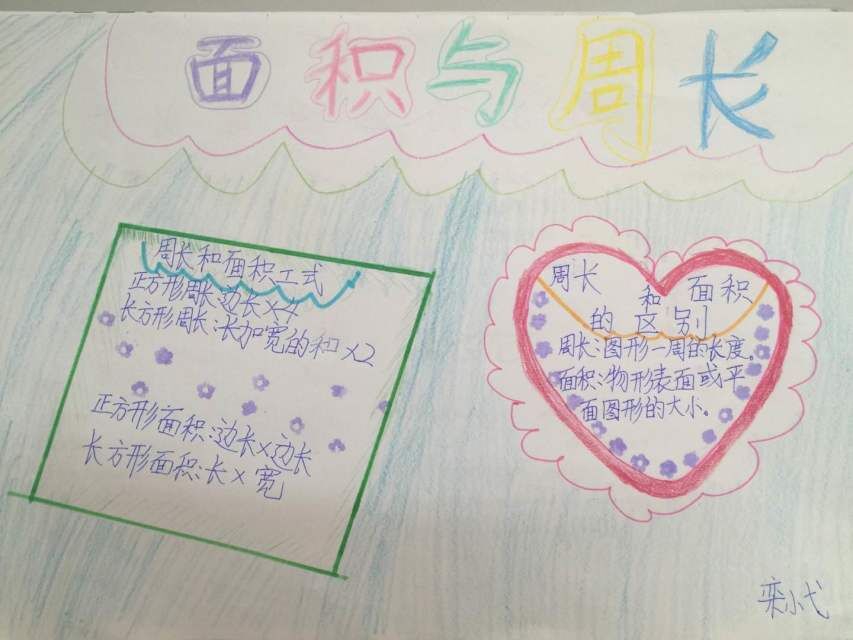 面积与周长
周长和面积工式
正方形周长:边长×4
长方形周长:长加宽的和×2
正方形面积:边长×边长
长方形面积:长×宽
周长和面积
的区别
周长:图形一周的长度。
面积:物形表面或平
面图形的大小。
栾小弋